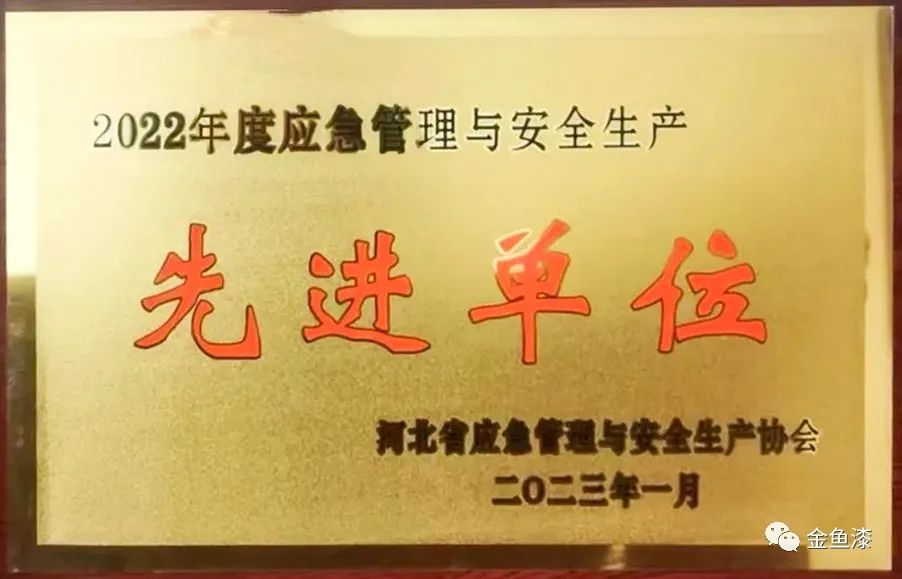 2022年度应急管理与安全生产
先进单位
河北省应急管理与安全生产协会
二〇二三年一月
金鱼漆